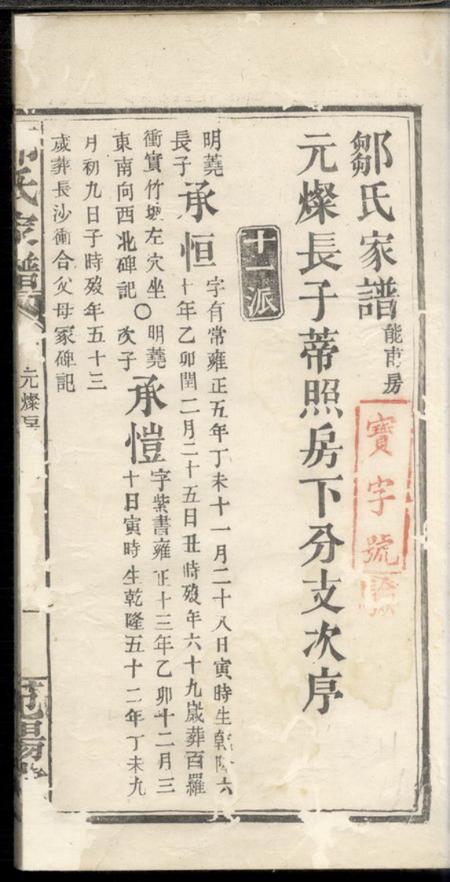 鄒氏家譜 能甫房
寶字號
元燦長子蒂照房下分支次序
十一派
明蕘
長子
承恒
字有常雍正五年丁未十一月二十八日寅時生乾隆六
十年乙卯閏二月二十五日丑時歿年六十九歲葬百羅
衝實竹塅左穴坐
東南向西北碑記
〇
明蕘
次子
承愷
字紫書雍正十三年乙卯十二月三
十日寅時生乾隆五十二年丁未九
月初九日子時歿年五十三
歲葬長沙衝合父母冢碑記
氏家譜
元燦房
一